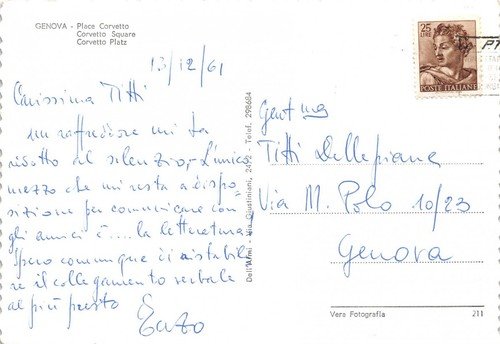 GENOVA - Place Corvetto
Corvetto Square
Corvetto Platz
13/12/61
Carissima Titti
un raffreddore mi ha
ridotto al silenzio, L'unico
mezzo che mi resta a dispo-
sizione per comunicare con
gli amici è .... la letteratura.
Spero comunque di ristabili-
re il collegamento verbale
al più presto
Enzo
Dell'Armi - Via Giustiniani, 24-92 - Telef. 298684
25
LIRE
POSTE ITALIANE
PT
Gent.ma
Titti Dellepiane
Via M. Polo 10/23
Genova
Vera Fotografia 211